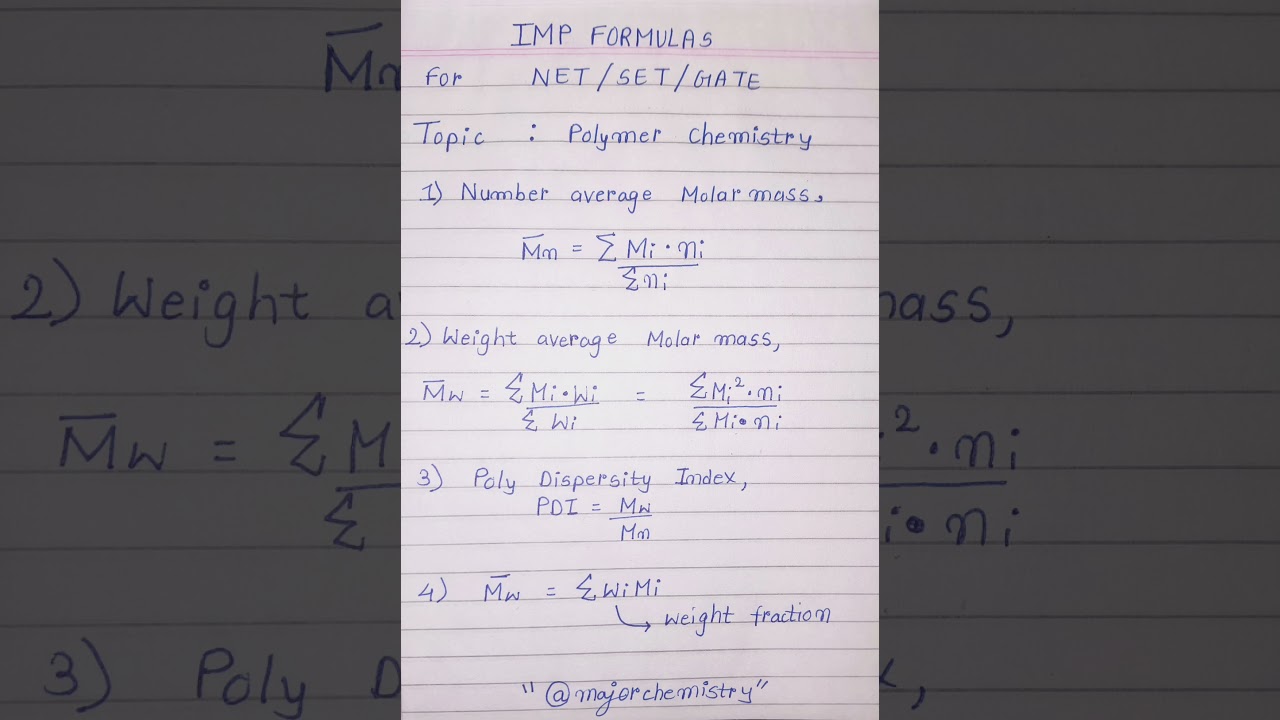 IMP FORMULAS
For NET/SET/GATE
Topic : Polymer Chemistry
1) Number average Molar mass,
M̅n = Σ Mi · ni / Σ ni
2) Weight average Molar mass,
M̅w = Σ Mi · Wi / Σ Wi = Σ Mi² · ni / Σ Mi · ni
3) Poly Dispersity Index,
PDI = Mw / Mn
4) M̅w = Σ Wi Mi
weight fraction
"@majorchemistry"
M̅n
2) Weight a
mass,
M̅w = Σ M
Σ
² · ni
i · ni
3) Poly D
x,